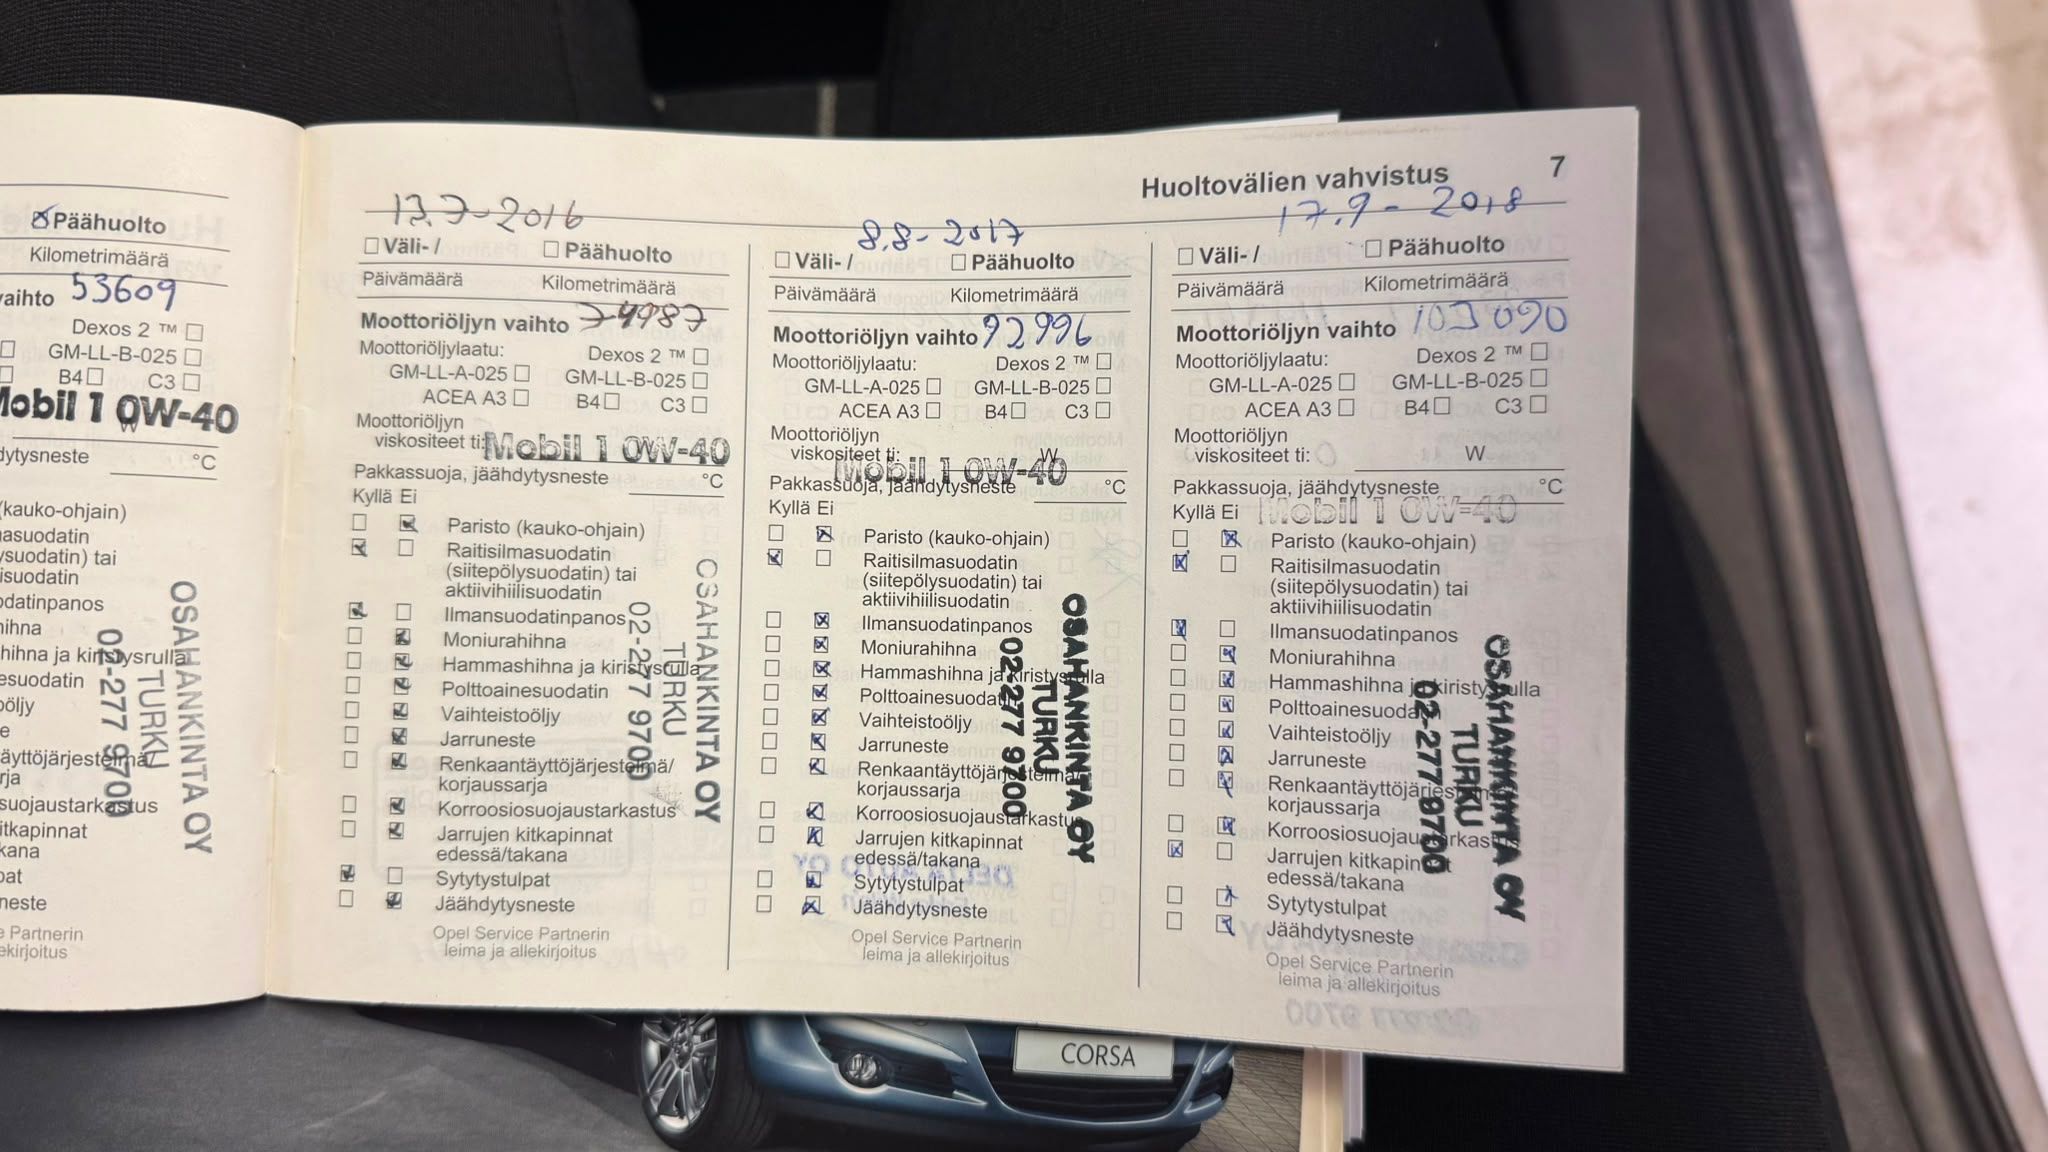 Huoltovälien vahvistus 7
☒ Päähuolto
Kilometrimäärä
vaihto 53609
Dexos 2 ™ ☐
☐ GM-LL-B-025 ☐
☐ B4 ☐ C3 ☐
Mobil 1 0W-40
W
°C
(kauko-ohjain)
OSAHANKINTA OY
TURKU
02-277 9700
13.7-2016
☐ Väli- / ☐ Päähuolto
Päivämäärä Kilometrimäärä
Moottoriöljyn vaihto 74987
Moottoriöljylaatu: Dexos 2 ™ ☐
GM-LL-A-025 ☐ GM-LL-B-025 ☐
ACEA A3 ☐ B4 ☐ C3 ☐
Moottoriöljyn
viskositeet ti: Mobil 1 0W-40
Pakkassuoja, jäähdytysneste °C
Kyllä Ei
☐ ☒ Paristo (kauko-ohjain)
☒ ☐ Raitisilmasuodatin
(siitepölysuodatin) tai
aktiivihiilisuodatin
☒ ☐ Ilmansuodatinpanos
☐ ☒ Moniurahihna
☐ ☒ Hammashihna ja kiristysrulla
☐ ☒ Polttoainesuodatin
☐ ☒ Vaihteistoöljy
☐ ☒ Jarruneste
☐ ☒ Renkaantäyttöjärjestelmä/
korjaussarja
☐ ☒ Korroosiosuojaustarkastus
☐ ☒ Jarrujen kitkapinnat
edessä/takana
☒ ☐ Sytytystulpat
☐ ☒ Jäähdytysneste
Opel Service Partnerin
leima ja allekirjoitus
OSAHANKINTA OY
TURKU
02-277 9700
8.8-2017
☐ Väli- / ☐ Päähuolto
Päivämäärä Kilometrimäärä
Moottoriöljyn vaihto 92996
Moottoriöljylaatu: Dexos 2 ™ ☐
GM-LL-A-025 ☐ GM-LL-B-025 ☐
ACEA A3 ☐ B4 ☐ C3 ☐
Moottoriöljyn
viskositeet ti: W
Mobil 1 0W-40
Pakkassuoja, jäähdytysneste °C
Kyllä Ei
☐ ☒ Paristo (kauko-ohjain)
☒ ☐ Raitisilmasuodatin
(siitepölysuodatin) tai
aktiivihiilisuodatin
☐ ☒ Ilmansuodatinpanos
☐ ☒ Moniurahihna
☐ ☒ Hammashihna ja kiristysrulla
☐ ☒ Polttoainesuodatin
☐ ☒ Vaihteistoöljy
☐ ☒ Jarruneste
☐ ☒ Renkaantäyttöjärjestelmä/
korjaussarja
☐ ☒ Korroosiosuojaustarkastus
☐ ☒ Jarrujen kitkapinnat
edessä/takana
☐ ☒ Sytytystulpat
☐ ☒ Jäähdytysneste
Opel Service Partnerin
leima ja allekirjoitus
OSAHANKINTA OY
TURKU
02-277 9700
17.9-2018
☐ Väli- / ☐ Päähuolto
Päivämäärä Kilometrimäärä
Moottoriöljyn vaihto 103090
Moottoriöljylaatu: Dexos 2 ™ ☐
GM-LL-A-025 ☐ GM-LL-B-025 ☐
ACEA A3 ☐ B4 ☐ C3 ☐
Moottoriöljyn
viskositeet ti: W
Pakkassuoja, jäähdytysneste °C
Kyllä Ei Mobil 1 0W-40
☐ ☒ Paristo (kauko-ohjain)
☒ ☐ Raitisilmasuodatin
(siitepölysuodatin) tai
aktiivihiilisuodatin
☒ ☐ Ilmansuodatinpanos
☐ ☒ Moniurahihna
☐ ☒ Hammashihna ja kiristysrulla
☐ ☒ Polttoainesuodatin
☐ ☒ Vaihteistoöljy
☐ ☒ Jarruneste
☐ ☒ Renkaantäyttöjärjestelmä
korjaussarja
☐ ☒ Korroosiosuojaustarkastus
☒ ☐ Jarrujen kitkapinnat
edessä/takana
☐ ☒ Sytytystulpat
☐ ☒ Jäähdytysneste
Opel Service Partnerin
leima ja allekirjoitus
OSAHANKINTA OY
TURKU
02-277 9700
CORSA